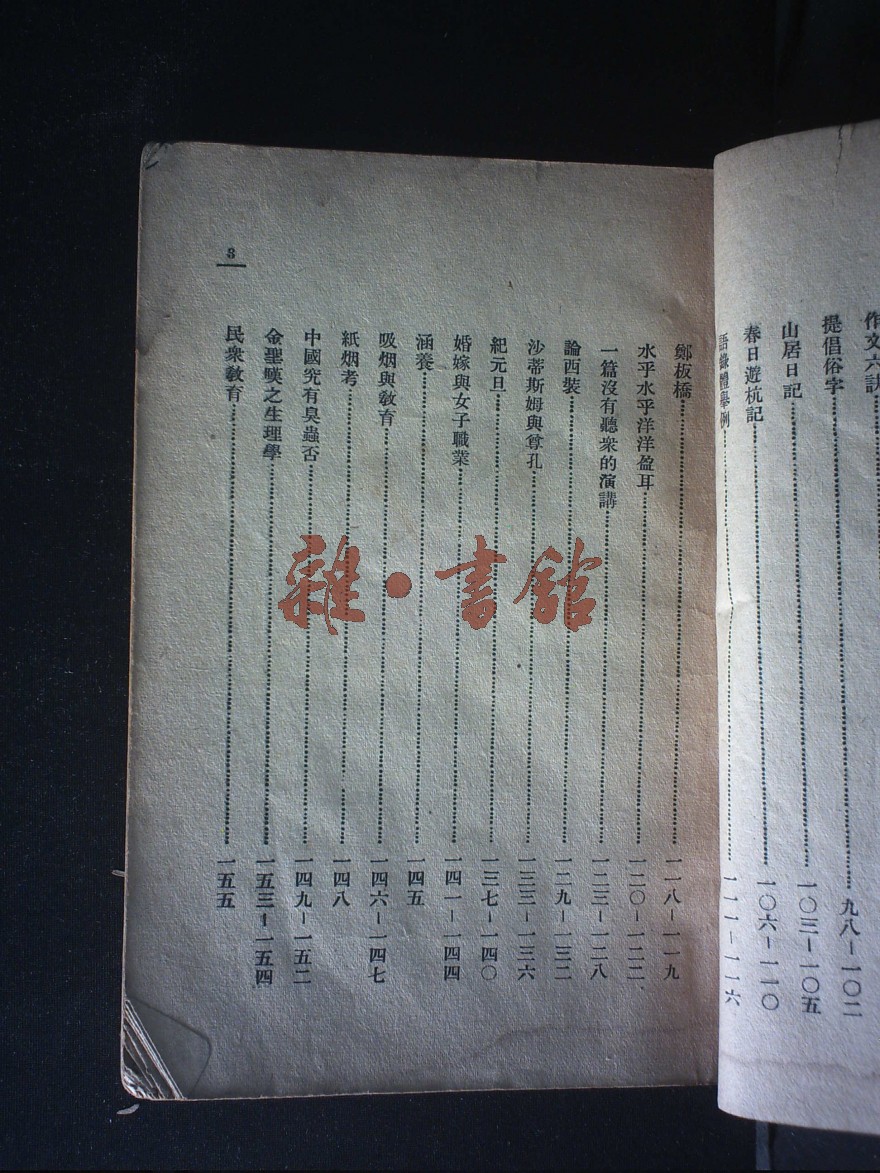 作文六訣
提倡俗字……九八－一〇二
山居日記……一〇三－一〇五
春日遊杭記……一〇六－一一〇
語錄體舉例……一一一－一一六
鄭板橋……一一八－一一九
水乎水乎洋洋盈耳……一二〇－一二二
一篇沒有聽衆的演講……一二三－一二八
論西裝……一二九－一三二
沙蒂斯姆與尊孔……一三三－一三六
紀元旦……一三七－一四〇
婚嫁與女子職業……一四一－一四四
涵養……一四五
吸烟與敎育……一四六－一四七
紙烟考……一四八
中國究有臭蟲否……一四九－一五二
金聖嘆之生理學……一五三－一五四
民衆敎育……一五五
3
雜·書館